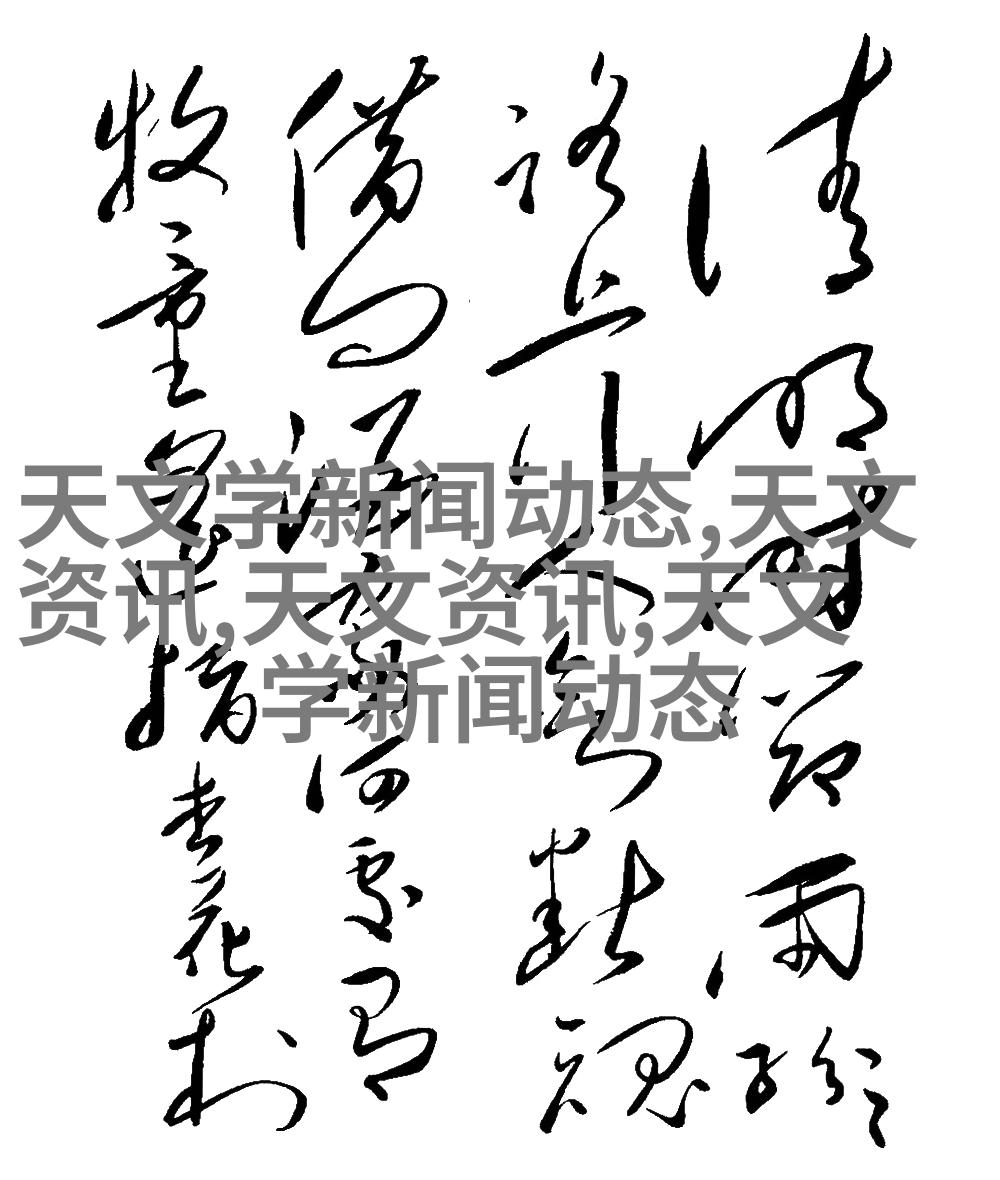 清明时节雨纷纷
路上行人欲断魂
借问酒家何处有
牧童遥指杏花村
天文学新闻动态,天文
资讯,天文资讯,天文
学新闻动态